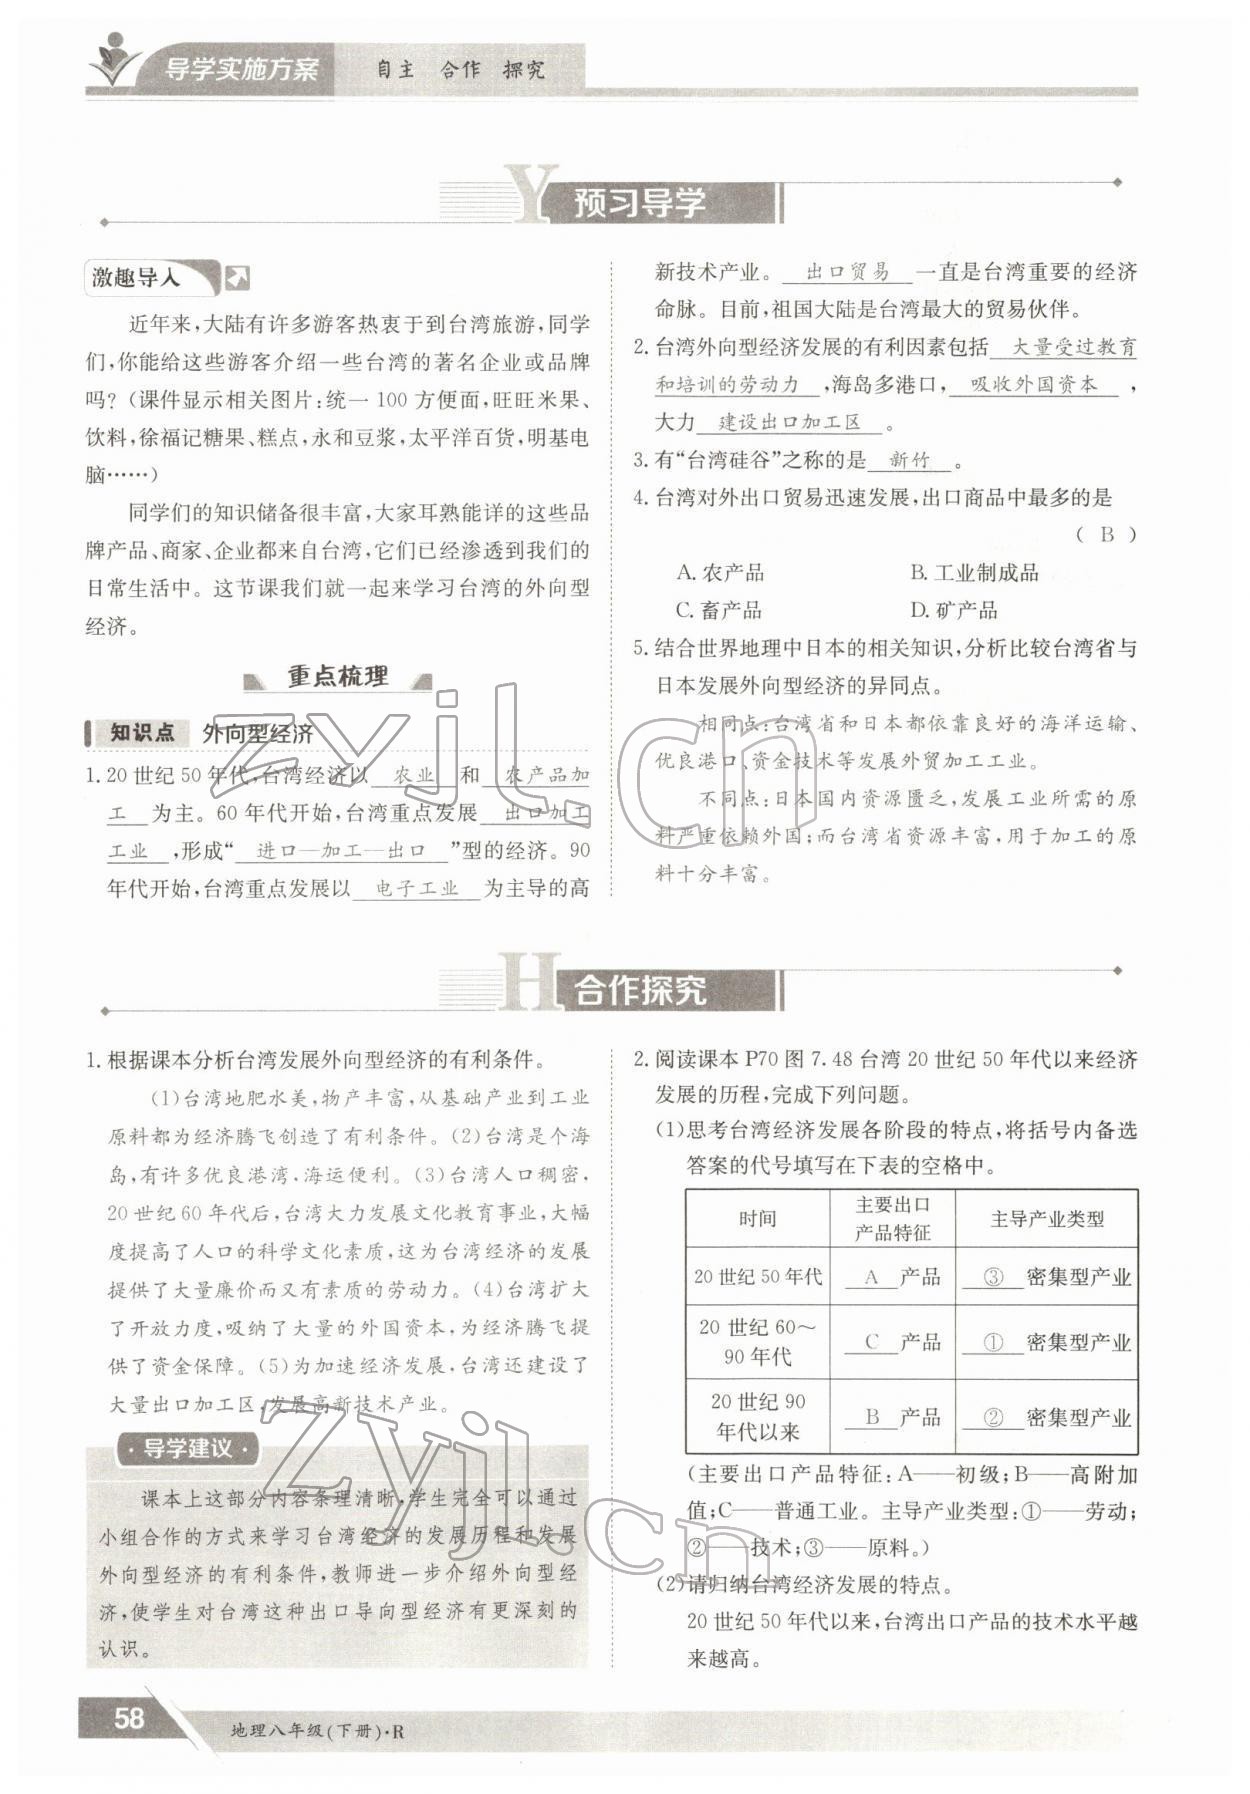 导学实施方案 自主 合作 探究
Y 预习导学
激趣导入
近年来,大陆有许多游客热衷于到台湾旅游,同学
们,你能给这些游客介绍一些台湾的著名企业或品牌
吗?(课件显示相关图片:统一 100 方便面,旺旺米果、
饮料,徐福记糖果、糕点,永和豆浆,太平洋百货,明基电
脑……)
同学们的知识储备很丰富,大家耳熟能详的这些品
牌产品、商家、企业都来自台湾,它们已经渗透到我们的
日常生活中。这节课我们就一起来学习台湾的外向型
经济。
重点梳理
知识点 外向型经济
1. 20 世纪 50 年代,台湾经济以 农业 和 农产品加
工 为主。60 年代开始,台湾重点发展 出口加工
工业 ,形成“ 进口—加工—出口 ”型的经济。90
年代开始,台湾重点发展以 电子工业 为主导的高
新技术产业。 出口贸易 一直是台湾重要的经济
命脉。目前,祖国大陆是台湾最大的贸易伙伴。
2. 台湾外向型经济发展的有利因素包括 大量受过教育
和培训的劳动力 ,海岛多港口, 吸收外国资本 ,
大力 建设出口加工区 。
3. 有“台湾硅谷”之称的是 新竹 。
4. 台湾对外出口贸易迅速发展,出口商品中最多的是
( B )
A. 农产品 B. 工业制成品
C. 畜产品 D. 矿产品
5. 结合世界地理中日本的相关知识,分析比较台湾省与
日本发展外向型经济的异同点。
相同点:台湾省和日本都依靠良好的海洋运输、
优良港口、资金技术等发展外贸加工工业。
不同点:日本国内资源匮乏,发展工业所需的原
料严重依赖外国;而台湾省资源丰富,用于加工的原
料十分丰富。
H 合作探究
1. 根据课本分析台湾发展外向型经济的有利条件。
(1)台湾地肥水美,物产丰富,从基础产业到工业
原料都为经济腾飞创造了有利条件。(2)台湾是个海
岛,有许多优良港湾,海运便利。(3)台湾人口稠密,
20 世纪 60 年代后,台湾大力发展文化教育事业,大幅
度提高了人口的科学文化素质,这为台湾经济的发展
提供了大量廉价而又有素质的劳动力。(4)台湾扩大
了开放力度,吸纳了大量的外国资本,为经济腾飞提
供了资金保障。(5)为加速经济发展,台湾还建设了
大量出口加工区,发展高新技术产业。
·导学建议·
课本上这部分内容条理清晰,学生完全可以通过
小组合作的方式来学习台湾经济的发展历程和发展
外向型经济的有利条件,教师进一步介绍外向型经
济,使学生对台湾这种出口导向型经济有更深刻的
认识。
2. 阅读课本 P70 图 7.48 台湾 20 世纪 50 年代以来经济
发展的历程,完成下列问题。
(1)思考台湾经济发展各阶段的特点,将括号内备选
答案的代号填写在下表的空格中。
时间 主要出口产品特征 主导产业类型
20 世纪 50 年代 A 产品 ③ 密集型产业
20 世纪 60~90 年代 C 产品 ① 密集型产业
20 世纪 90 年代以来 B 产品 ② 密集型产业
(主要出口产品特征:A——初级;B——高附加
值;C——普通工业。主导产业类型:①——劳动;
②——技术;③——原料。)
(2)请归纳台湾经济发展的特点。
20 世纪 50 年代以来,台湾出口产品的技术水平越
来越高。
58 地理八年级(下册)·R
zyjl.cn
zyjl.cn